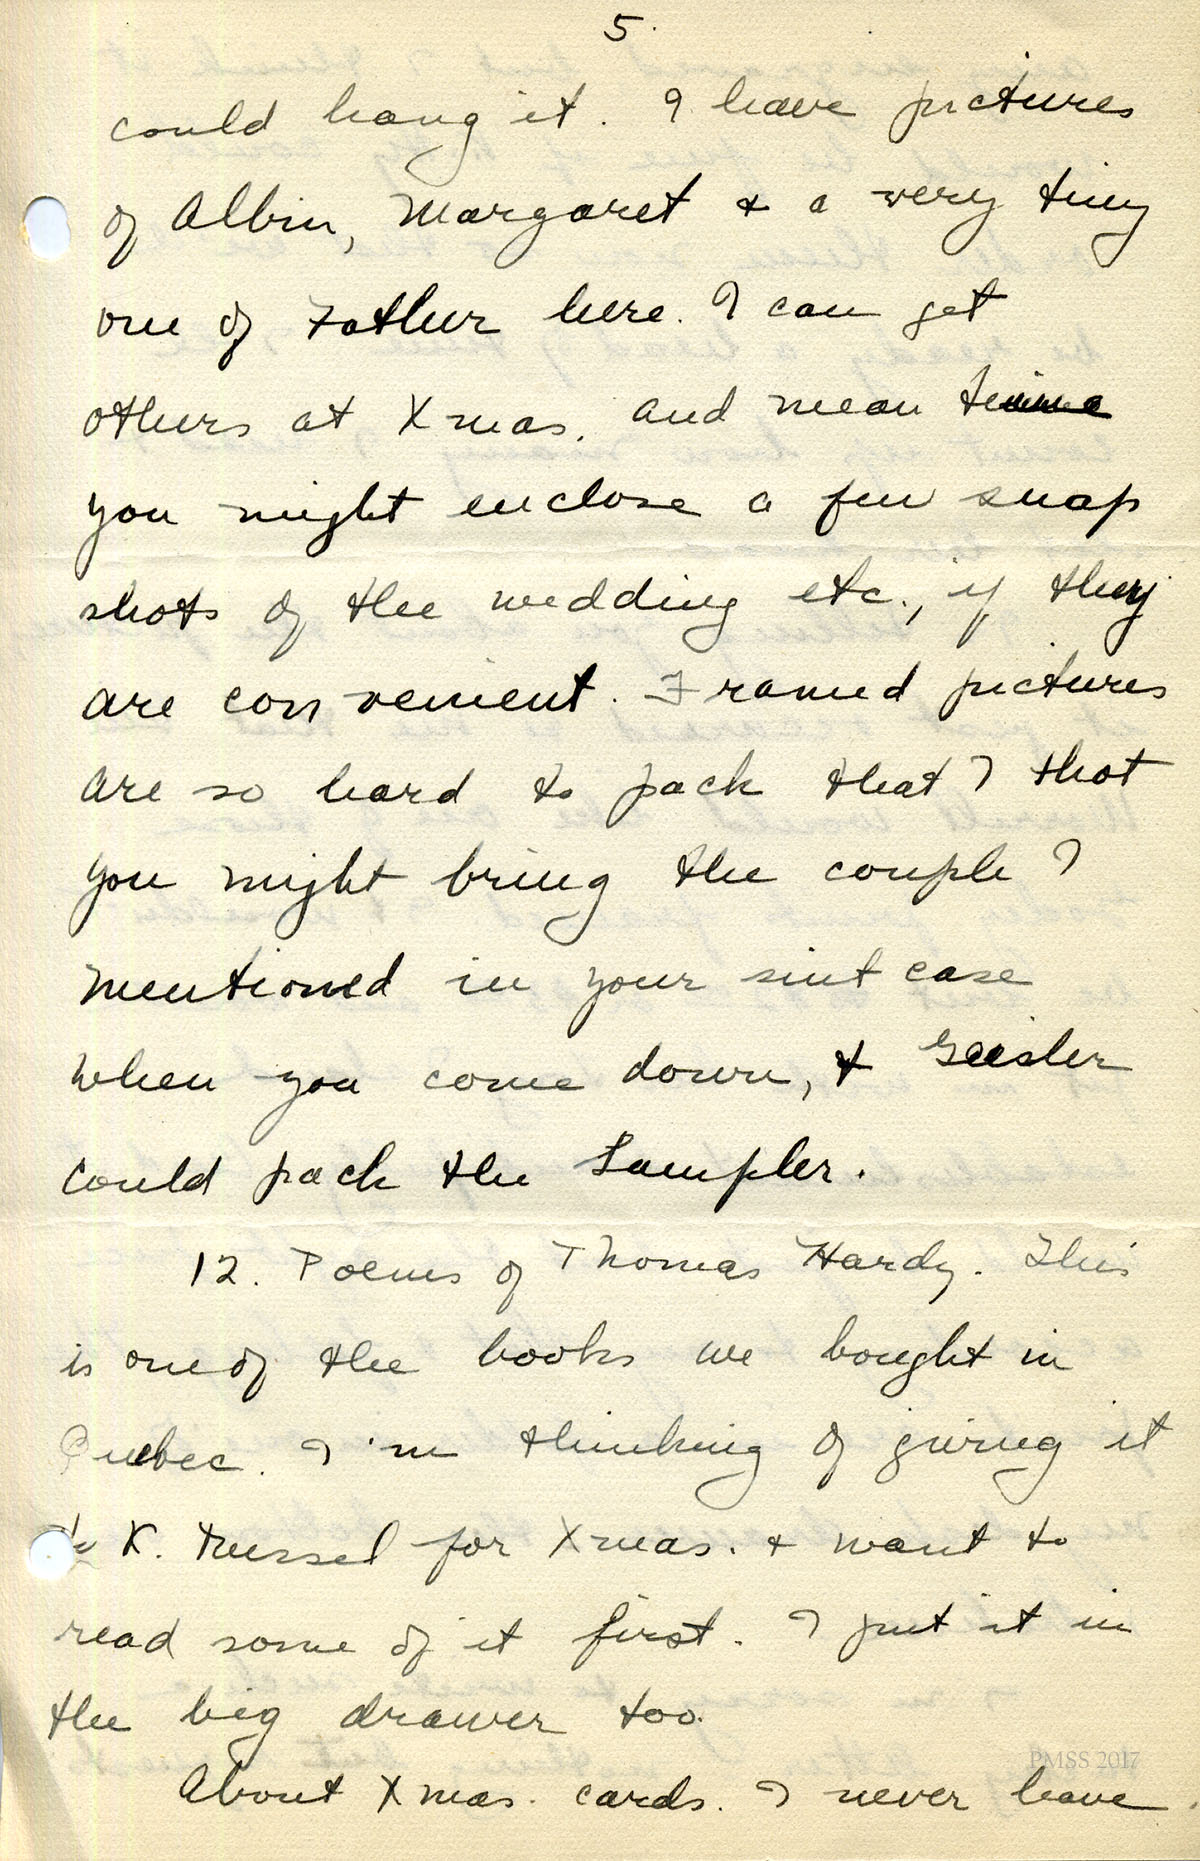 5.
could hang it. I have pictures
of Albin, Margaret & a very tiny
one of Father here. I can get
others at Xmas. and mean time
you might enclose a few snap
shots of the wedding etc., if they
are convenient. Framed pictures
are so hard to pack that I thot
you might bring the couple I
mentioned in your suit case
when you come down, & Geisler
could pack the Sampler.
12. Poems of Thomas Hardy. This
is one of the books we bought in
Quebec. I'm thinking of giving it
to K. Trussel for Xmas. & want to
read some of it first. I put it in
the big drawer too.
About Xmas. cards. I never have
PMSS 2017